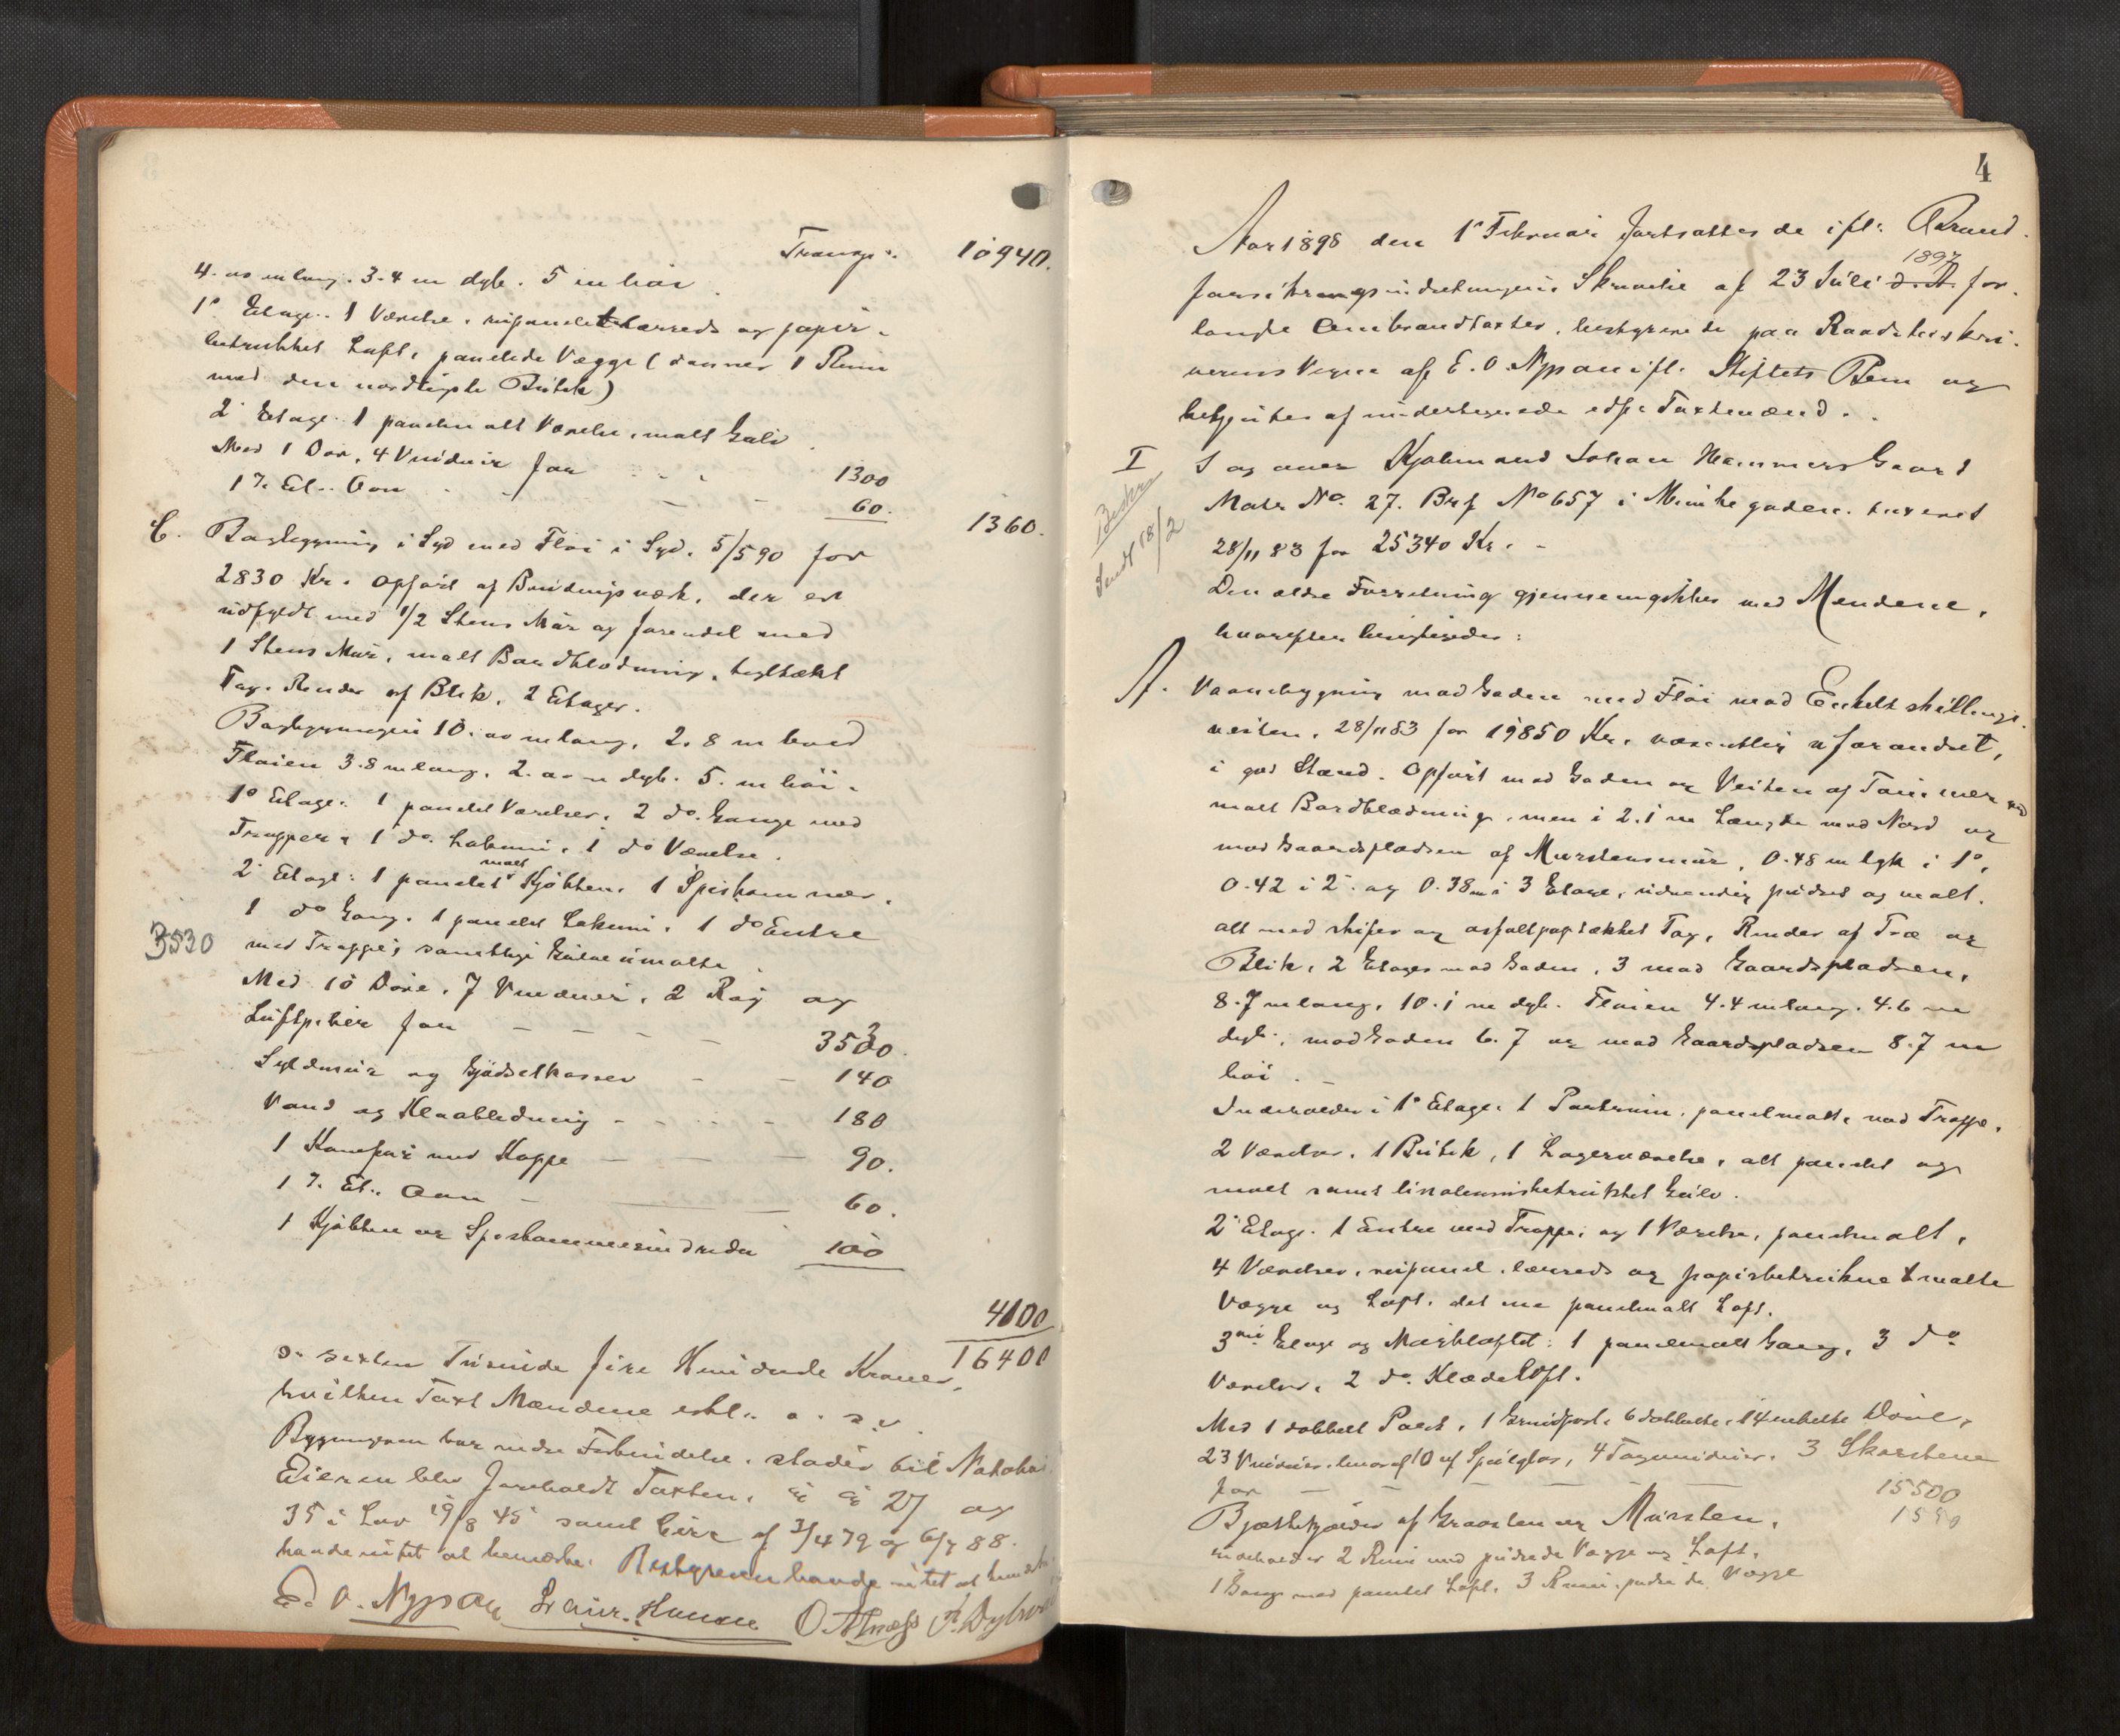 Transp: 10940.
4. m lang. 3.4 m dyb. 5 m höi.
1ᵉ Etage. 1 Værelse, papir-
betrukket Loft, panelede Vægge (danner 1 Rum
med den nordligste Butik)
2ᵉ Etage. 1 panelmalt Værelse, malt Gulv.
Med 1 Dör, 4 Vinduer for 1300
1 7. Et. Ovn 60.
1360.
C. Bagbygning i Syd med Flöi i Syd. 5/5 90 for
2830 Kr. Opfört af Bindingsværk, der er
udfyldt med 1/2 Stens Mur og forendel med
1 Stens Mur, malt Bordklædning, teglstækt
Tag. Render af Blik. 2 Etager.
Bagbygningen 10. m lang, 2.8 m bred
Flöien 3.8 m lang. 2. m dyb. 5. m höi.
1ᵉ Etage. 1 panelet Værelser, 2 dº. Gange med
Trapper, 1 dº. Lokum, 1 dº Værelse.
2ᵉ Etage: 1 panelet malt Kjökken, 1 Spiskammer,
1 dº Gang. 1 panelet Lokum, 1 dº Entre
med Trappe, samtlige Gulve umalte.
3530
Med 10 Döre, 7 Vinduer, 2 Rög og
Luftpiber for 3530.
Syldmur og Gjödselkasser 140
Vand og Kloakledning 180
1 Komfur med Kappe 90.
1 7. Et. Ovn 60.
1 Kjökken og Spiskammerindredn 100
4100
16400
Er sexten Tusinde fire Hundrede Kroner,
hvilken Taxt Mændene
Bygningen har indre Forbindelse, stöder til Nabohus.
Eieren blev foreholdt Taxten, §§ 27 og
35 i Lov 19/8 45 samt Circ af 3/4 79 og 6/7 88.
havde intet at bemærke. Bestyreren havde intet at bemærke.
E. O. Nypan Laur. Hansen O. Alnæss
4
Aar 1898 den 1ᵉ Februar fortsattes de ifl. Brand-
forsikringsindretningens Skrivelse af 23 Juli d. A. 1897 for-
langte Ombrandtaxter, bestyrede paa Raadstueskri-
verens Vegne af E. O. Nypan ifl. Stiftets Bem og
betjentes af undertegnede edsv. Taxtmænd.
I
Sendt 18/2
Kjöbmand Johan Hammers Gaard
Matr Nº. 27. Brf Nº 657 i Munkegaden, taxeret
28/11 83 for 25340 Kr. -
Den ældre Forretning gjennemgikkes med Mændene,
hvorefter besigtigedes:
A. Vaanebygning mod Gaden med Flöi mod Enkeltskillings-
veiten. 28/11 83 for 19850 Kr. væsentlig uforandret,
i god Stand. Opfört mod Gaden og Veiten af Tömmer med
malt Bordklædning, men i 2.1 m Længde mod Nord og
mod Gaardspladsen af Murstensmur, 0.48 m tyk i 1ᵉ,
0.42 i 2ᵉ. og 0.38 m i 3 Etage, udvendig pudset og malt.
alt med skifer og asfaltpaptækket Tag, Render af Træ og
Blik, 2 Etager mod Gaden, 3 mod Gaardspladsen,
8.7 m lang, 10.1 m dyb. Flöien 4.4 m lang. 4.6 m
dyb, mod Gaden 6.7 og mod Gaardspladsen 8.7 m
höi. -
Indeholder i 1ᵉ Etage. 1 Portrum, panelmalt, med Trappe,
2 Værelser, 1 Butik, 1 Lagerværelse, alt panelet og
malt samt linoleumsbetrukket Gulv.
2ᵉ Etage. 1 Entre med Trappe, og 1 Værelse, panelmalt,
4 Værelser, rupanel. lærreds og papirbetrukne & malte
Vægge og Loft, det ene panelmalt Loft.
3die Etage og Mörkloftet: 1 panelmalt Gang, 3 dº
Værelser, 2 dº. Klædeloft.
Med 1 dobbelt Port, 1 Grindport, 6 dobbelte, 14 enkelte Döre,
23 Vinduer, hvoraf 10 af Speilglas, 4 Tagvinduer, 3 Skorstene
for 15500
Bjælkekjælder af Graasten og Mursten,
indeholder 2 Rum med pudsede Vægge og Loft,
1 Gang med panelet Loft, 3 Rum, pudsede Vægge